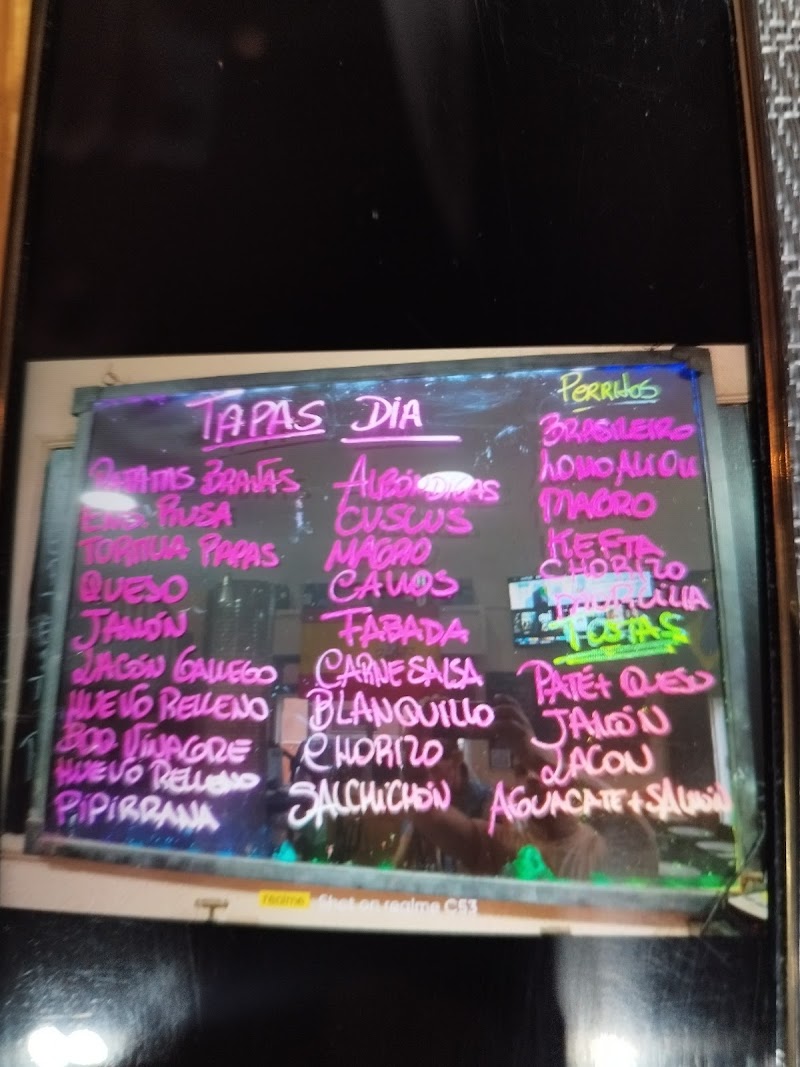 TAPAS DIA
PATATAS BRAVAS
ENS. RUSA
TORTILLA PAPAS
QUESO
JAMÓN
LACÓN GALLEGO
HUEVO RELLENO
BOQ VINAGRE
HUEVO RELLENO
PIPIRRANA
ALBÓNDIGAS
CUSCUS
MAGRO
CALLOS
FABADA
CARNE SALSA
BLANQUILLO
CHORIZO
SALCHICHÓN
PERRITOS
BRASILEIRO
LOMO ALIOLI
MAGRO
KEFTA
CHORIZO
TOSTAS
PATÉ + QUESO
JAMÓN
LACON
AGUACATE + SALMÓN
realme Shot on realme C53